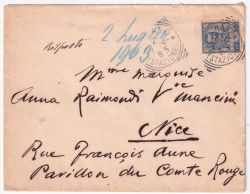 risposto
2 Luglio
1903
STAZIONE
Mme Marquise
Anna Raimondi Vve Mancini
Nice
Rue François Aune
Pavillon du Comte Rouge